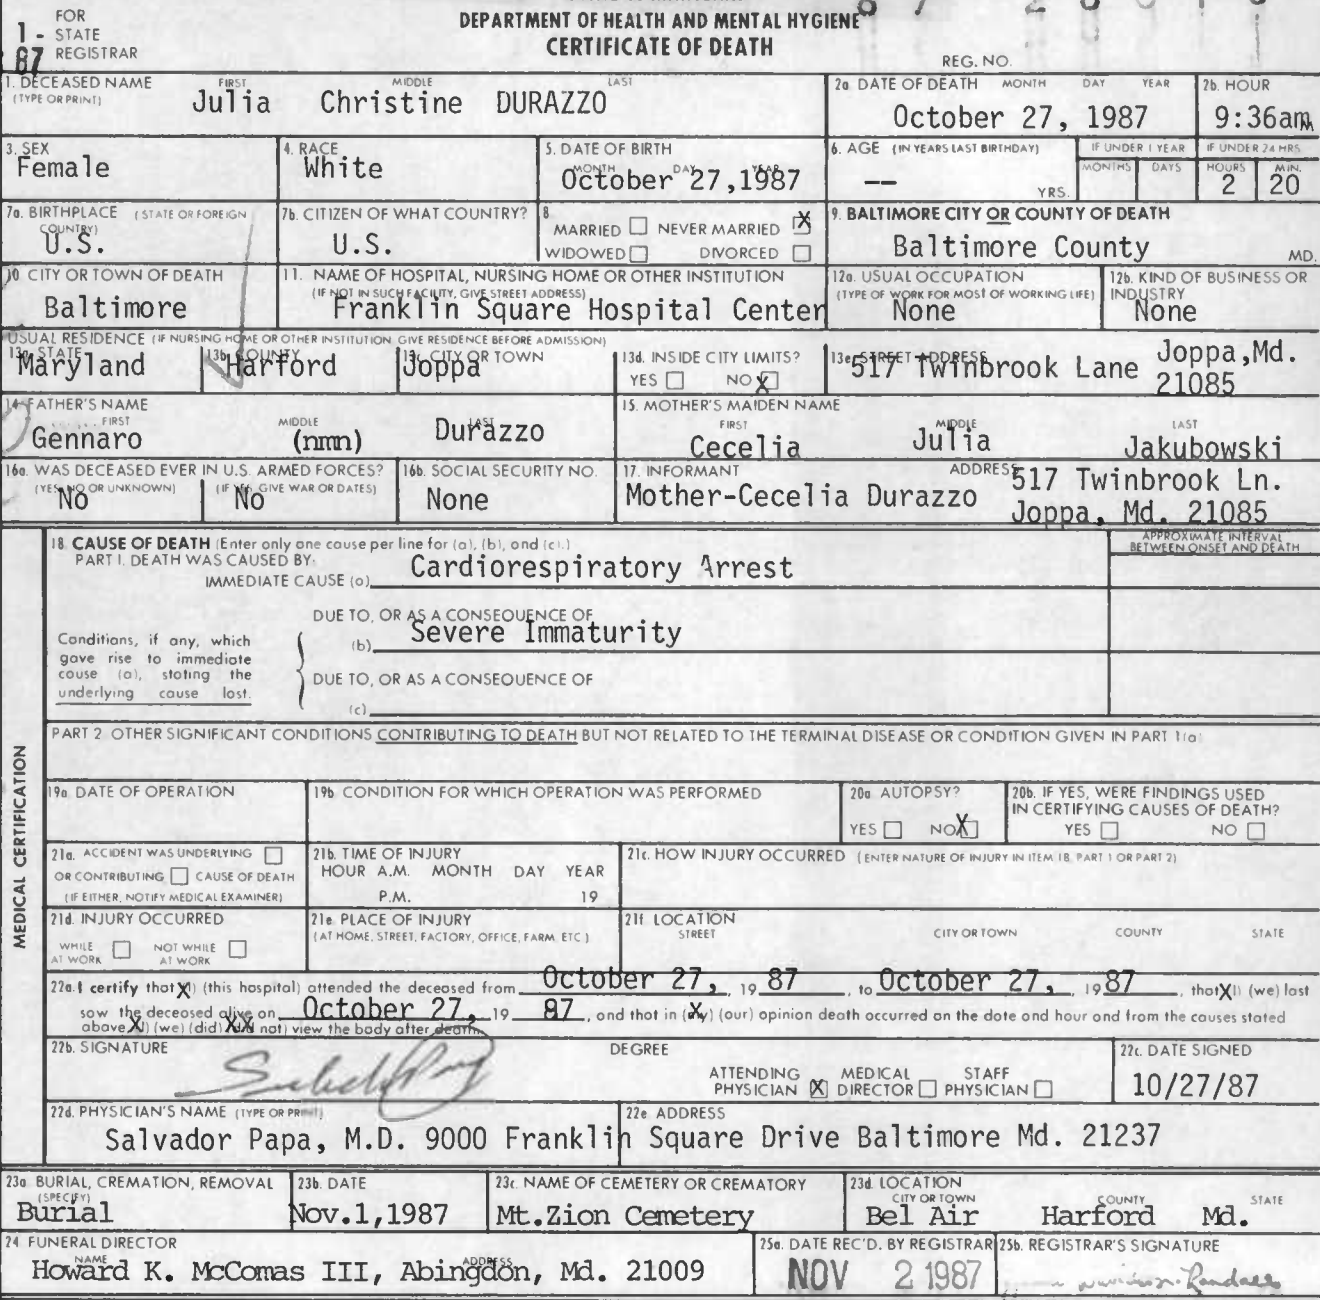 FOR
1 - STATE
87 REGISTRAR
DEPARTMENT OF HEALTH AND MENTAL HYGIENE
CERTIFICATE OF DEATH
REG. NO.
1. DECEASED NAME FIRST MIDDLE LAST
(TYPE OR PRINT) Julia Christine DURAZZO
2a. DATE OF DEATH MONTH DAY YEAR
October 27, 1987
2b. HOUR
9:36am M
3. SEX
Female
4. RACE
White
5. DATE OF BIRTH
MONTH DAY YEAR
October 27,1987
6. AGE (IN YEARS LAST BIRTHDAY)
-- YRS.
IF UNDER 1 YEAR
MONTHS DAYS
IF UNDER 24 HRS
HOURS MIN.
2 20
7a. BIRTHPLACE (STATE OR FOREIGN
COUNTRY)
U.S.
7b. CITIZEN OF WHAT COUNTRY?
U.S.
8
MARRIED NEVER MARRIED X
WIDOWED DIVORCED
9. BALTIMORE CITY OR COUNTY OF DEATH
Baltimore County MD.
10. CITY OR TOWN OF DEATH
Baltimore
11. NAME OF HOSPITAL, NURSING HOME OR OTHER INSTITUTION
(IF NOT IN SUCH FACILITY, GIVE STREET ADDRESS)
Franklin Square Hospital Center
12a. USUAL OCCUPATION
(TYPE OF WORK FOR MOST OF WORKING LIFE)
None
12b. KIND OF BUSINESS OR
INDUSTRY
None
USUAL RESIDENCE (IF NURSING HOME OR OTHER INSTITUTION GIVE RESIDENCE BEFORE ADMISSION)
13a. STATE
Maryland
13b. COUNTY
Harford
13c. CITY OR TOWN
Joppa
13d. INSIDE CITY LIMITS?
YES NO X
13e. STREET ADDRESS
517 Twinbrook Lane Joppa,Md.
21085
14. FATHER'S NAME
FIRST MIDDLE LAST
Gennaro (nmn) Durazzo
15. MOTHER'S MAIDEN NAME
FIRST MIDDLE LAST
Cecelia Julia Jakubowski
16a. WAS DECEASED EVER IN U.S. ARMED FORCES?
(YES, NO OR UNKNOWN) (IF YES, GIVE WAR OR DATES)
No No
16b. SOCIAL SECURITY NO.
None
17. INFORMANT ADDRESS
Mother-Cecelia Durazzo 517 Twinbrook Ln.
Joppa, Md. 21085
MEDICAL CERTIFICATION
18. CAUSE OF DEATH (Enter only one cause per line for (a), (b), and (c).)
PART I. DEATH WAS CAUSED BY:
IMMEDIATE CAUSE (a) Cardiorespiratory Arrest
APPROXIMATE INTERVAL
BETWEEN ONSET AND DEATH
DUE TO, OR AS A CONSEQUENCE OF
(b) Severe Immaturity
Conditions, if any, which
gave rise to immediate
cause (a), stating the
underlying cause last.
DUE TO, OR AS A CONSEQUENCE OF
(c)
PART 2 OTHER SIGNIFICANT CONDITIONS CONTRIBUTING TO DEATH BUT NOT RELATED TO THE TERMINAL DISEASE OR CONDITION GIVEN IN PART 1(a)
19a. DATE OF OPERATION
19b. CONDITION FOR WHICH OPERATION WAS PERFORMED
20a. AUTOPSY?
YES NO X
20b. IF YES, WERE FINDINGS USED
IN CERTIFYING CAUSES OF DEATH?
YES NO
21a. ACCIDENT WAS UNDERLYING
OR CONTRIBUTING CAUSE OF DEATH
(IF EITHER, NOTIFY MEDICAL EXAMINER)
21b. TIME OF INJURY
HOUR A.M. MONTH DAY YEAR
P.M. 19
21c. HOW INJURY OCCURRED (ENTER NATURE OF INJURY IN ITEM 18, PART 1 OR PART 2)
21d. INJURY OCCURRED
WHILE AT WORK NOT WHILE AT WORK
21e. PLACE OF INJURY
(AT HOME, STREET, FACTORY, OFFICE, FARM, ETC.)
21f. LOCATION
STREET CITY OR TOWN COUNTY STATE
22a. I certify that X(I) (this hospital) attended the deceased from October 27, 19 87, to October 27, 19 87, that X(I) (we) last
saw the deceased alive on October 27, 19 87, and that in (my) (our) opinion death occurred on the date and hour and from the causes stated
above X(I) (we) (did) (did not) view the body after death.
22b. SIGNATURE
DEGREE
ATTENDING PHYSICIAN X MEDICAL DIRECTOR STAFF PHYSICIAN
22c. DATE SIGNED
10/27/87
22d. PHYSICIAN'S NAME (TYPE OR PRINT) 22e ADDRESS
Salvador Papa, M.D. 9000 Franklin Square Drive Baltimore Md. 21237
23a. BURIAL, CREMATION, REMOVAL
(SPECIFY)
Burial
23b. DATE
Nov.1,1987
23c. NAME OF CEMETERY OR CREMATORY
Mt.Zion Cemetery
23d. LOCATION
CITY OR TOWN COUNTY STATE
Bel Air Harford Md.
24. FUNERAL DIRECTOR
NAME ADDRESS
Howard K. McComas III, Abingdon, Md. 21009
25a. DATE REC'D. BY REGISTRAR
NOV 2 1987
25b. REGISTRAR'S SIGNATURE
Randall